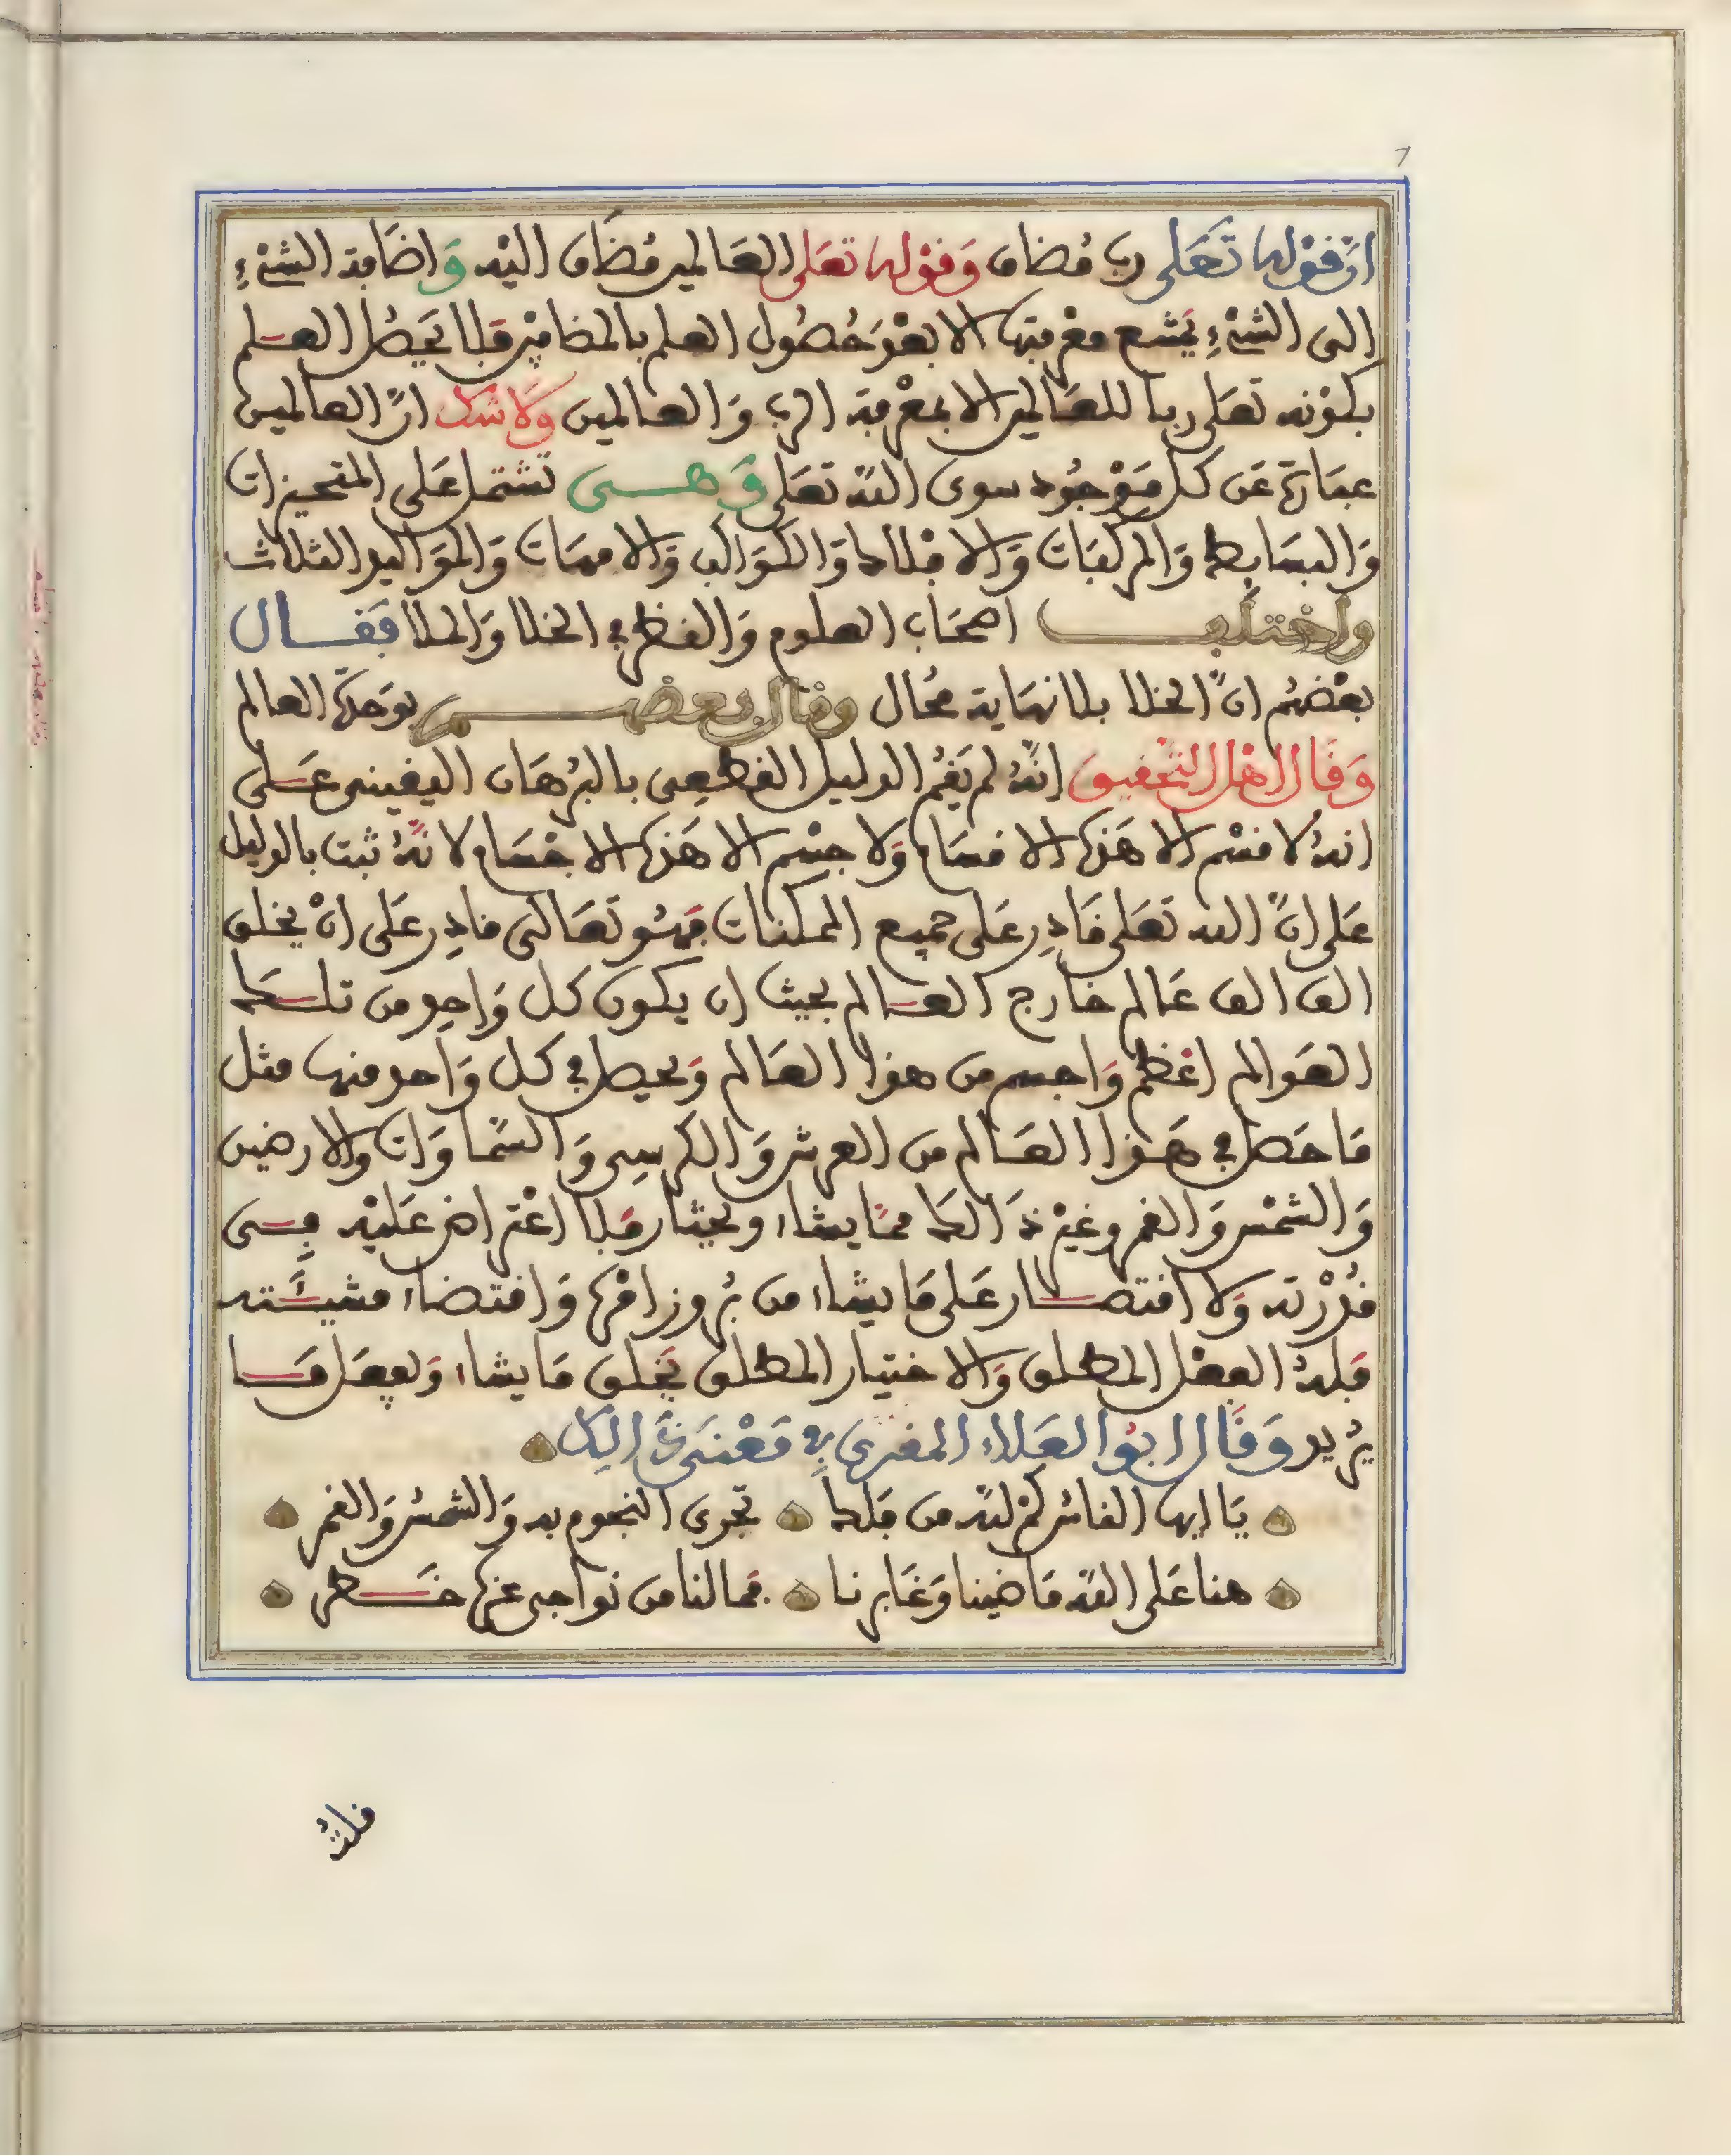 ان قوله تعلى رب مضاف وقوله تعلى العالمين مضاف اليه واضافة الشيء
الى الشيء يمتنع معرفتها الا بعد حصول العلم بالمضافين فلا يحصل العلم
بكونه تعلى ربا للعالمين الا بمعرفة الرب والعالمين ولا شك ان العالمين
عبارة عن كل موجود سوى الله تعلى وهى تشتمل على المتحيزات
والبسايط والمركبات والافلاك والكواكب والامهات والمواليد الثلاث
واختلف اصحاب العلوم والنظر في الخلا والملا فقال
بعضهم ان الخلا بلا نهاية محال وقال بعضهم بوحدة العالم
وقال اهل التحقيق انه لم يقم الدليل القطعى بالبرهان اليقينى على
انه لا قسم الا هذه الاقسام ولا جسم الا هذه الاجسام لانه ثبت بالدليل
على ان الله تعلى قادر على جميع الممكنات فهو تعالى قادر على ان يخلق
الف الف عالم خارج العالم بحيث ان يكون كل واحد من تلك
العوالم اعظم واجسم من هذا العالم ويحصل في كل واحد منها مثل
ما حصل في هذا العالم من العرش والكرسي والسماوات والارضين
والشمس والقمر وغير ذالك مما يشاء ويختار فلا اعتراض عليه في
قدرته ولا اقتصار على ما يشاء من بروز امره واقتضاء مشيئته
فله الفضل المطلق والاختيار المطلق يخلق ما يشاء ويفعل ما
يريد وقال ابو العلاء المغربي في معنى ذالك
يا ايها الناس كم لله من فلك تجرى النجوم به والشمس والقمر
هنا على الله ماضينا وغابرنا فما لنا من نواحى غيره خطر
قلت